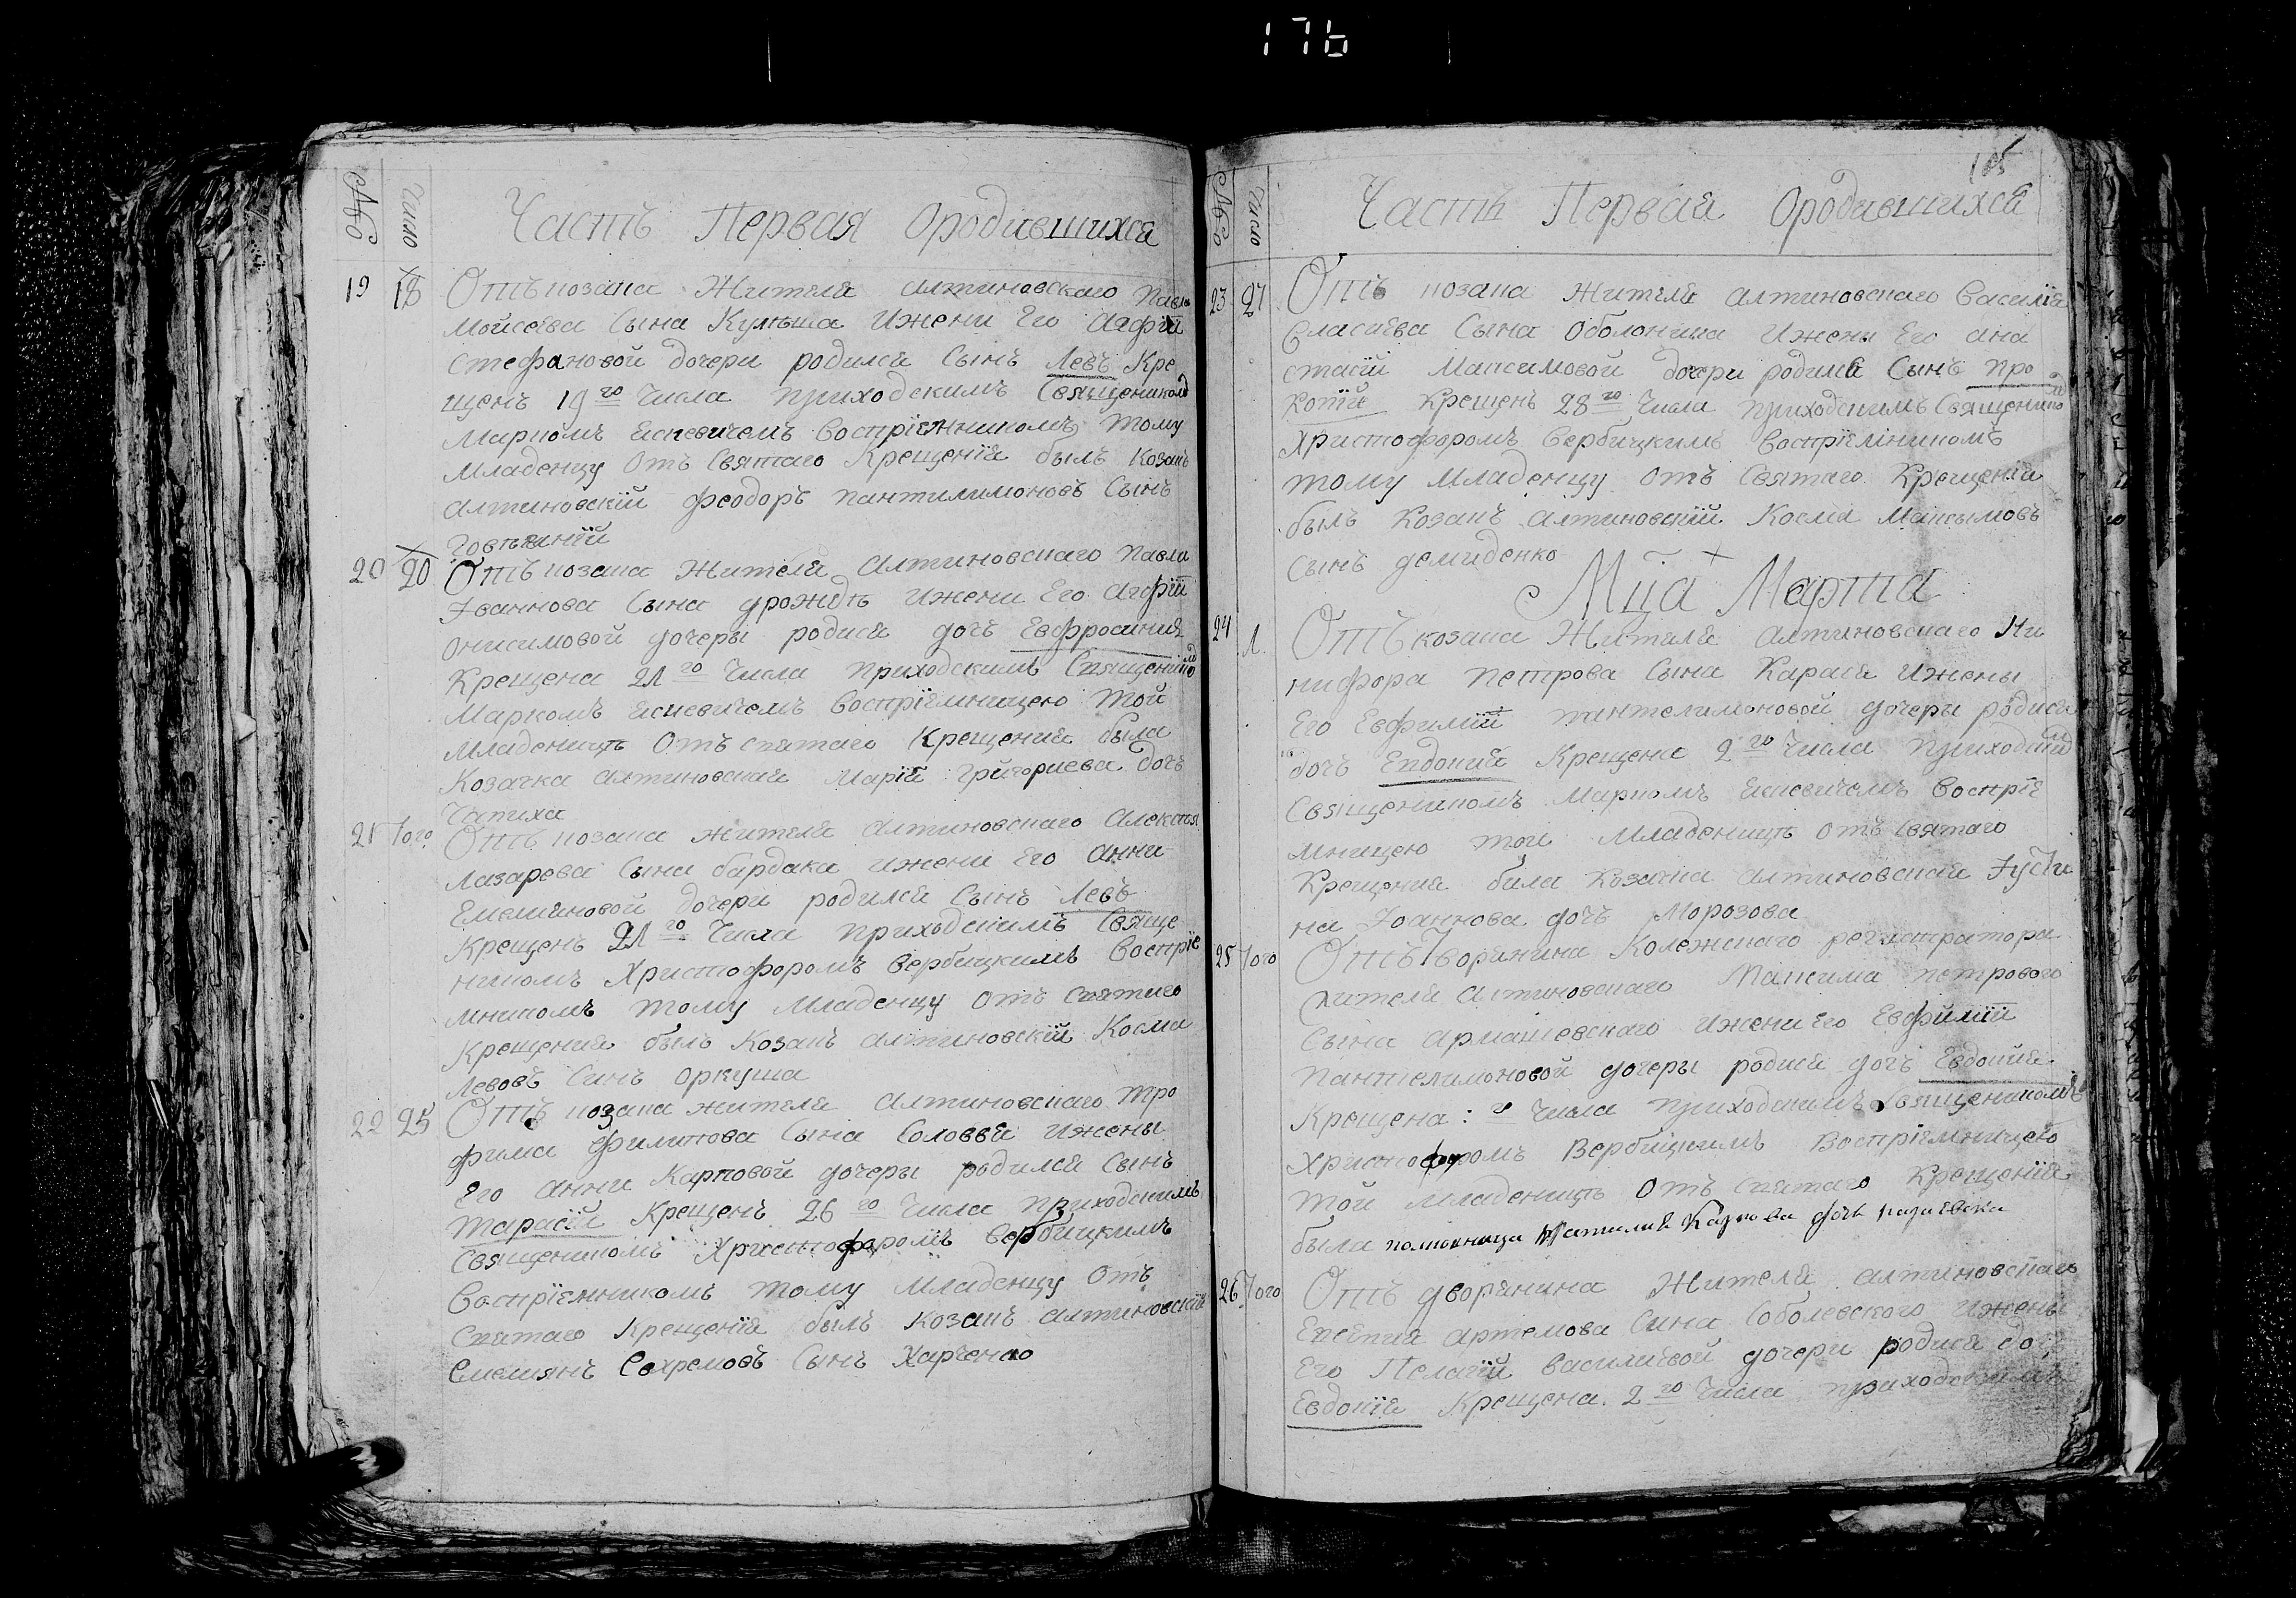 176
№ Число Часть Первая Ородившихся
19 18 Отъ козака Жителя алтиновскаго Павла
Мойсеева Сына Кульша Ижени Его Агафіи
Стефановой дочери родился Сынъ Левъ Кре
щенъ 19го Числа приходскимъ Священикомъ
Маркомъ Воспріемникомъ тому
Младенцу Отъ Святаго Крещенія былъ Козакъ
алтиновскій Феодоръ пантилимоновъ Сынъ
20 20 Отъ козака Жителя Алтиновскаго Павла
Іваннова Сына дрождъ Ижени Его Агафіи
Онисимовой дочеры родися дочь Евфросиния
Крещена 21го Числа приходскимъ Священикомъ
Маркомъ Воспріемницею той
Младеницъ Отъ святаго Крещения была
Козачка алтиновская Марія Григориева дочь
Чапиха
21 Того Отъ козака жителя алтиновскаго Алексея
Лазарева Сына бардака ижени Его Анни
Емелиановой дочери родился Сынъ Левъ
Крещенъ 21го Числа приходскимъ Свяще
никомъ Христофоромъ Вербицкимъ Воспріе
мникомъ тому Младенцу Отъ Святаго
Крещения былъ Козакъ алтиновскій Косма
Левовъ Синъ Оркуша
22 25 Отъ козака жителя Алтиновскаго Тро
фима Филипова Сына Соловья Ижены
Его Анни Карповой дочеры родился Сынъ
Тарасій Крещенъ 26го Числа приходскимъ
Священикомъ Христофоромъ Вербицкимъ
Воспріемникомъ тому Младенцу Отъ
Святаго Крещенія былъ Козакъ алтиновскій
Емелиянъ Сынъ Харченко
105
№ Число Часть Первая Ородившихся
23 27 Отъ козака Жителя Алтиновскаго Василія
Власиева Сына Оболоника Ижены Его Ана
стасіи Максимовой дочери родился Сынъ Про
копій Крещенъ 28го Числа приходскимъ Священико
Христофоромъ Вербицкимъ Воспріемникомъ
тому Младенцу Отъ Святаго Крещенія
былъ Козакъ Алтиновскій Косма Максымовъ
Сынъ демиденко
Мца Марта
24 1 Отъ козака Жителя Алтиновскаго Ни
кифора Петрова Сына Карася Ижены
Его Евфиміи пантелимоновой дочеры родися
дочь Евдокия Крещена 2го Числа приходским
Священикомъ Маркомъ Воспріе
мницею той Младеницъ Отъ Святаго
Крещения била Козачка алтиновская Густи
на Іоаннова дочь Морозова
25 Того Отъ дворянина Колежскаго регистратора
жителя Алтиновскаго Максима петрового
Сына Армашевскаго Ижени Его Евфиміи
Пантелимоновой дочеры родися дочь Евдокия
Крещена: Числа приходскимъ Священикомъ
Христофоромъ Вербицкимъ Воспріемницею
той Младеницъ Отъ Святаго Крещенія
была Наталия Карпова дочь
26 Того Отъ дворянина Жителя алтиновскаго
Евсевия Артемова Сина Соболевского Ижены
Его Пелагіи василиевой дочери родися доч
Евдокія Крещена 2го Числа приходскимъ